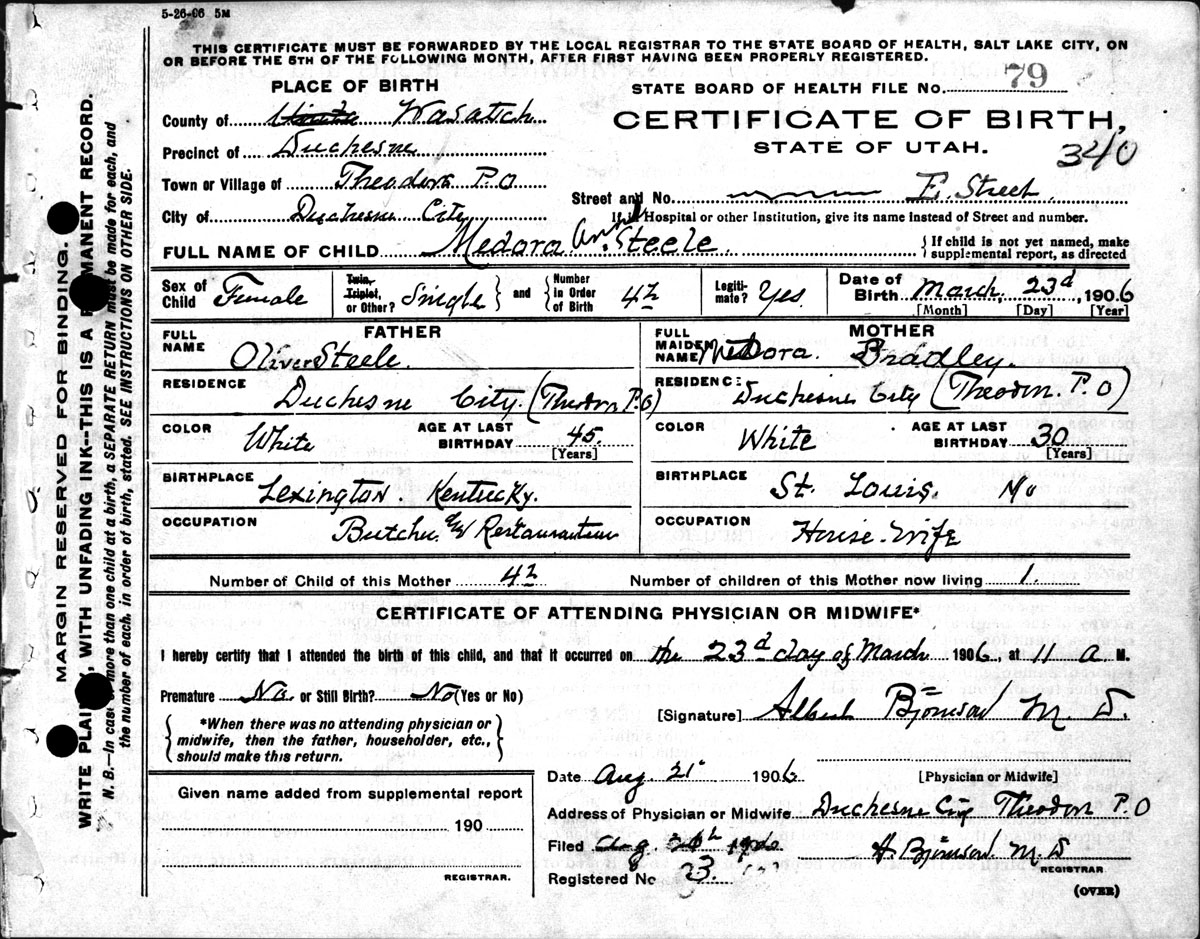 5-26-06 5M
THIS CERTIFICATE MUST BE FORWARDED BY THE LOCAL REGISTRAR TO THE STATE BOARD OF HEALTH, SALT LAKE CITY, ON
OR BEFORE THE 5TH OF THE FOLLOWING MONTH, AFTER FIRST HAVING BEEN PROPERLY REGISTERED.
PLACE OF BIRTH
STATE BOARD OF HEALTH FILE No. 79
County of Wasatch
CERTIFICATE OF BIRTH,
Precinct of Duchesne
STATE OF UTAH.
340
Town or Village of Theodore P.O
Street and No. E. Street.
City of Duchesne City
If in Hospital or other Institution, give its name instead of Street and number.
FULL NAME OF CHILD Medora Ann Steele.
If child is not yet named, make
supplemental report, as directed
Sex of Child Female
Twin, Triplet, or Other? Single and Number in Order of Birth 4th
Legiti-mate? Yes
Date of Birth March, 23d, 1906
[Month] [Day] [Year]
FATHER
MOTHER
FULL NAME Oliver Steele.
FULL MAIDEN NAME Medora. Bradley.
RESIDENCE Duchesne City. (Theodore P.O)
RESIDENCE: Duchesne City (Theodore. P.O)
COLOR White AGE AT LAST BIRTHDAY 45. [Years]
COLOR White AGE AT LAST BIRTHDAY 30 [Years]
BIRTHPLACE Lexington. Kentucky.
BIRTHPLACE St. Louis. Mo
OCCUPATION Butcher Restauranteur
OCCUPATION House-Wife
Number of Child of this Mother 4th
Number of children of this Mother now living 1.
CERTIFICATE OF ATTENDING PHYSICIAN OR MIDWIFE*
I hereby certify that I attended the birth of this child, and that it occurred on the 23d day of March 1906, at 11 a M.
Premature No. or Still Birth? No (Yes or No)
*When there was no attending physician or
midwife, then the father, householder, etc.,
should make this return.
[Signature] Albert Björnson M. D.
[Physician or Midwife]
Date Aug. 21st 1906
Given name added from supplemental report
190
REGISTRAR.
Address of Physician or Midwife Duchesne City Theodore P.O
Filed Aug. 1906
H. Björnson M. D
REGISTRAR
Registered No 23.
(OVER)
MARGIN RESERVED FOR BINDING.
WRITE PLAINLY, WITH UNFADING INK--THIS IS A PERMANENT RECORD.
N. B.—In case of more than one child at a birth, a SEPARATE RETURN must be made for each, and
the number of each, in order of birth, stated. SEE INSTRUCTIONS ON OTHER SIDE.